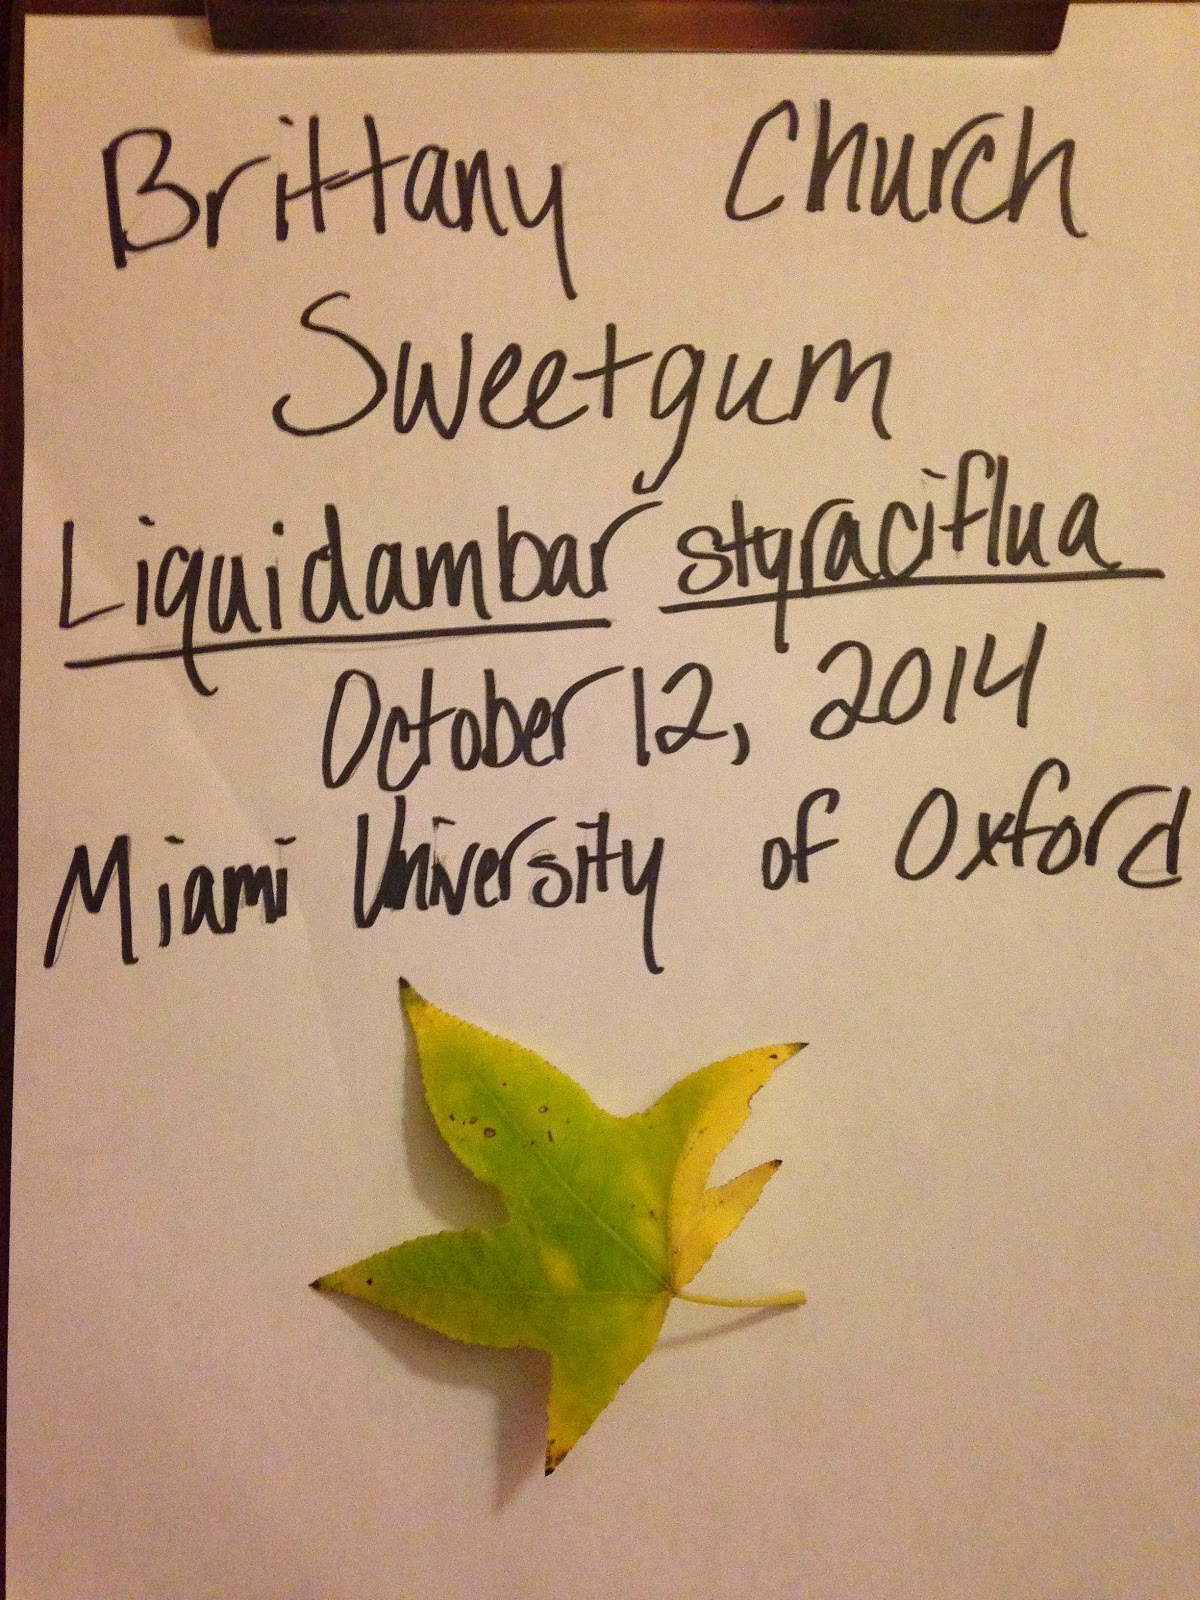 Brittany Church
Sweetgum
Liquidambar styraciflua
October 12, 2014
Miami University of Oxford